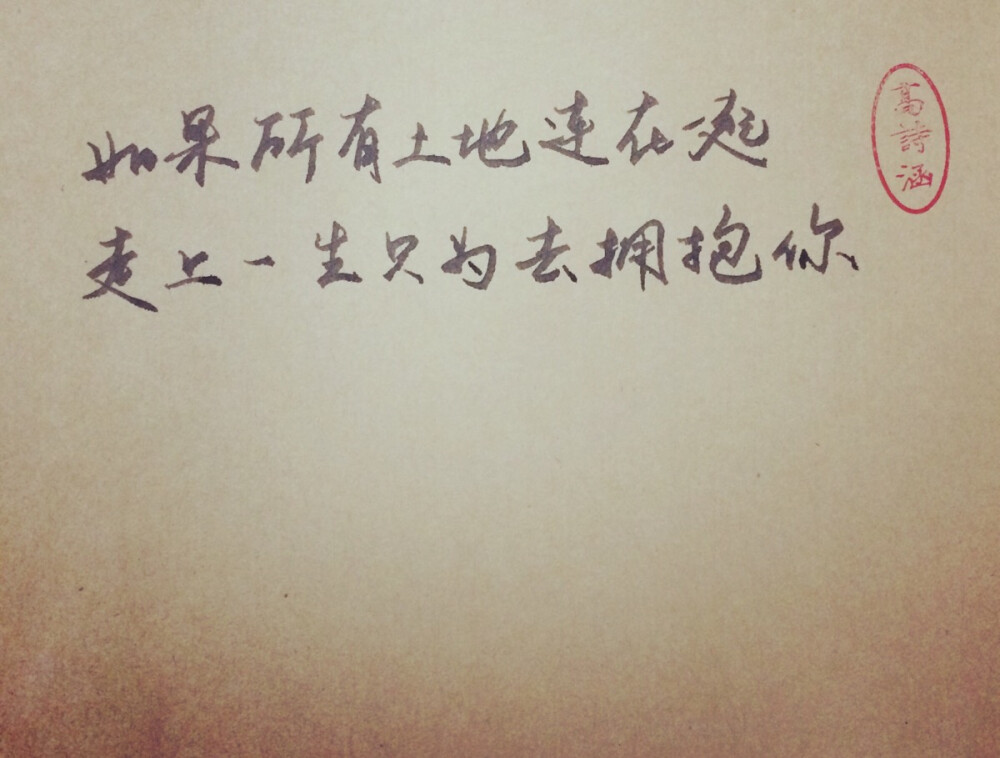 如果所有土地连在一起
走上一生只为去拥抱你
高詩涵